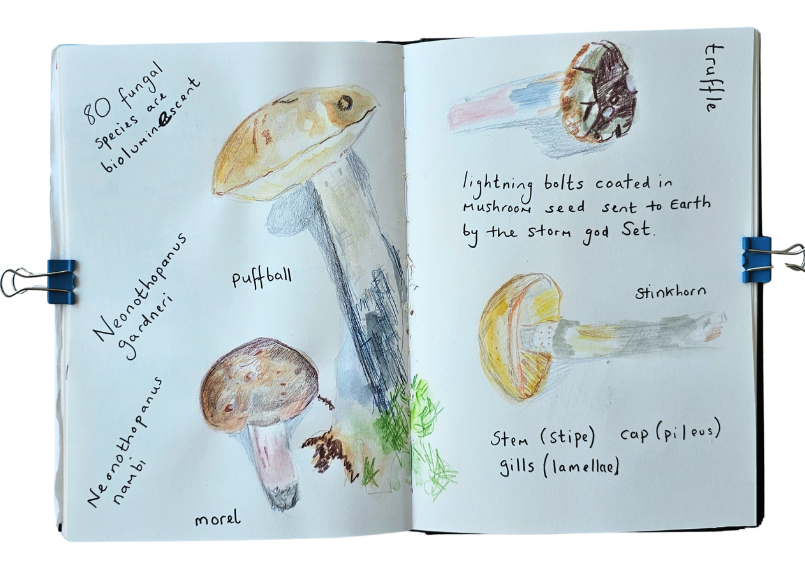 80 fungal
species are
bioluminescent
Puffball
Neonothopanus
gardneri
Neonothopanus
nambi
morel
truffle
lightning bolts coated in
Mushroom seed sent to Earth
by the storm god Set.
Stinkhorn
Stem (stipe) cap (pileus)
gills (lamellae)